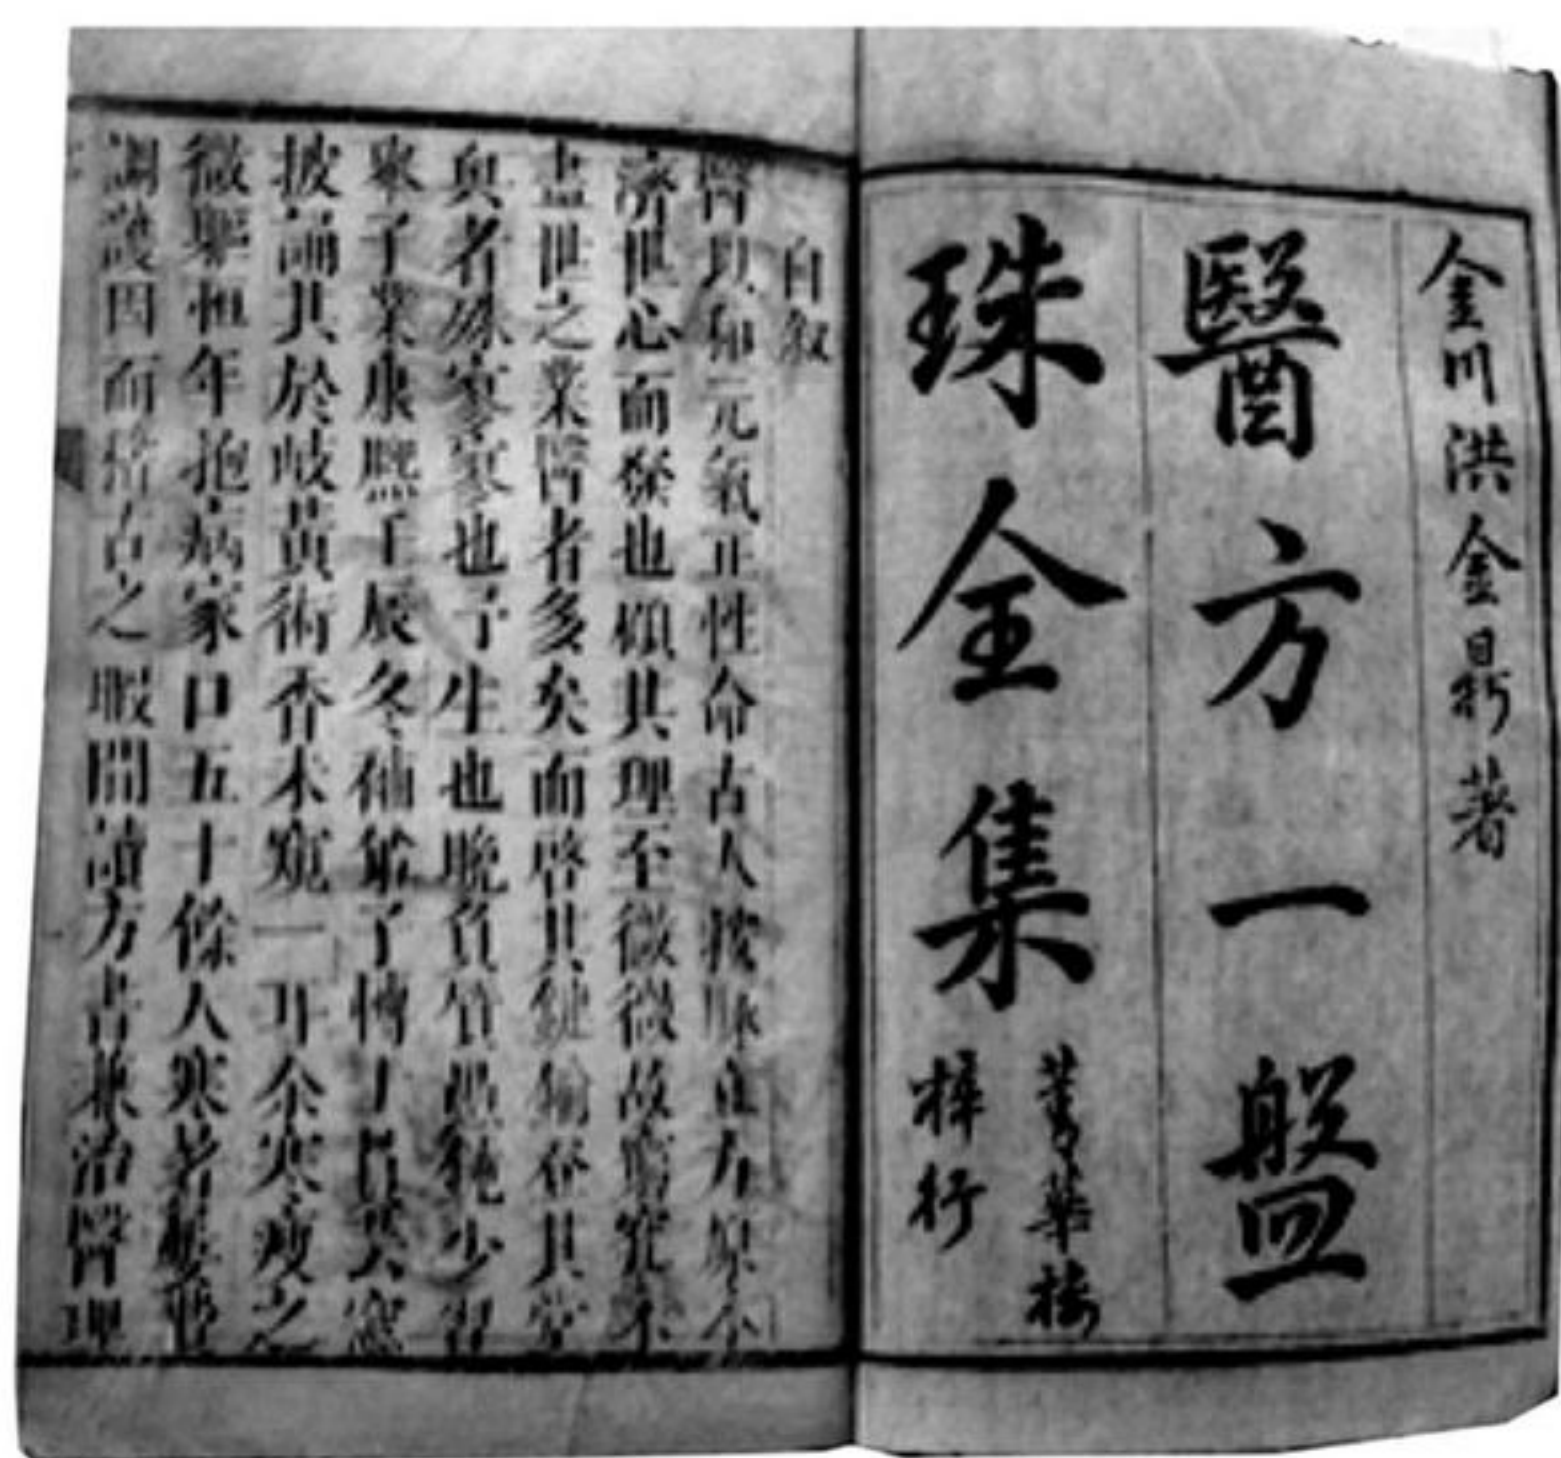 金川洪金鼎著
醫方一盤
珠全集
菁華樓
梓行
自叙
醫以和元氣正性命古人按脉立方原
濟世心而發也顧其理至微微故窮究不
盡世之業醫者多矣而啓其鍵其堂
奥者殊寥寥也予生也晚負少習
舉子業康熙壬辰冬窓
披誦其於岐黄術杳未窺一余寒瘦之
微軀恒年抱病家口五十餘人寒暑
調護因而稽古之暇間讀方書兼治醫理